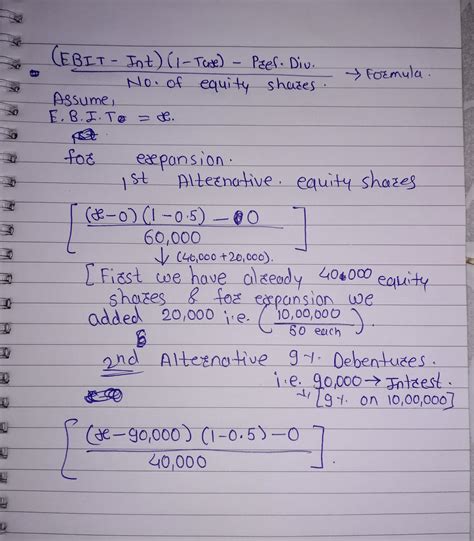 (EBIT - Int) (1-Tax) - Pref. Div. → Formula.
No. of equity shares.
Assume,
E.B.I.T. = x.
for expansion.
1st Alternative. equity shares
[(x-0) (1-0.5) - 0
60,000 ]
↓ (40,000 + 20,000).
[First we have already 40,000 equity
shares & for expansion we
added 20,000 i.e. (10,00,000
50 each)
2nd Alternative 9% Debentures.
i.e. 90,000 → Intrest.
↳ [9% on 10,00,000]
[(x-90,000) (1-0.5) - 0
40,000 ].